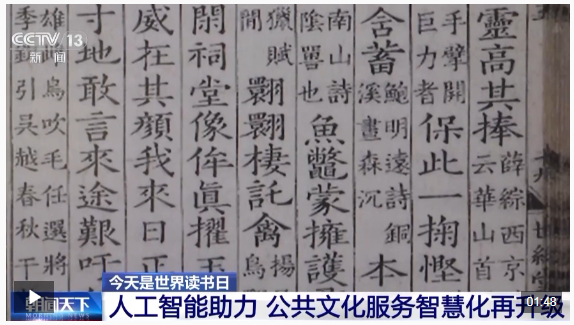 靈高其捧
薛綜西京
云華山首
手擘開
巨力者
保此一掬慳
含蓄
鮑明遠詩銅
溪晝森沉
本
南山詩
陰嘼也
魚鼈蒙擁護
獵賦
翾翾棲託禽
揚
鳥
閑祠堂像侔眞擢
威在其顔我來日正
寸地敢言來途艱吁
吹毛任選將
引吳越春秋干
CCTV 13
新闻
今天是世界读书日
朝闻天下
人工智能助力 公共文化服务智慧化再升级
01:48